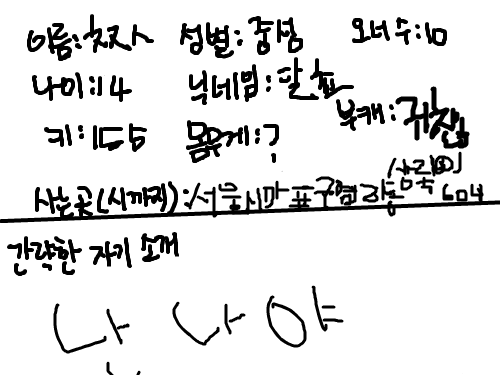 이름:칫지ㅅ 성별:중성 오너수:10
나이:14 닉네임:달
키:155 몸무게:? 부캐:귀찮
사는곳(시까지):서울시마포구염리동 604
간략한 자기 소개
난 나야